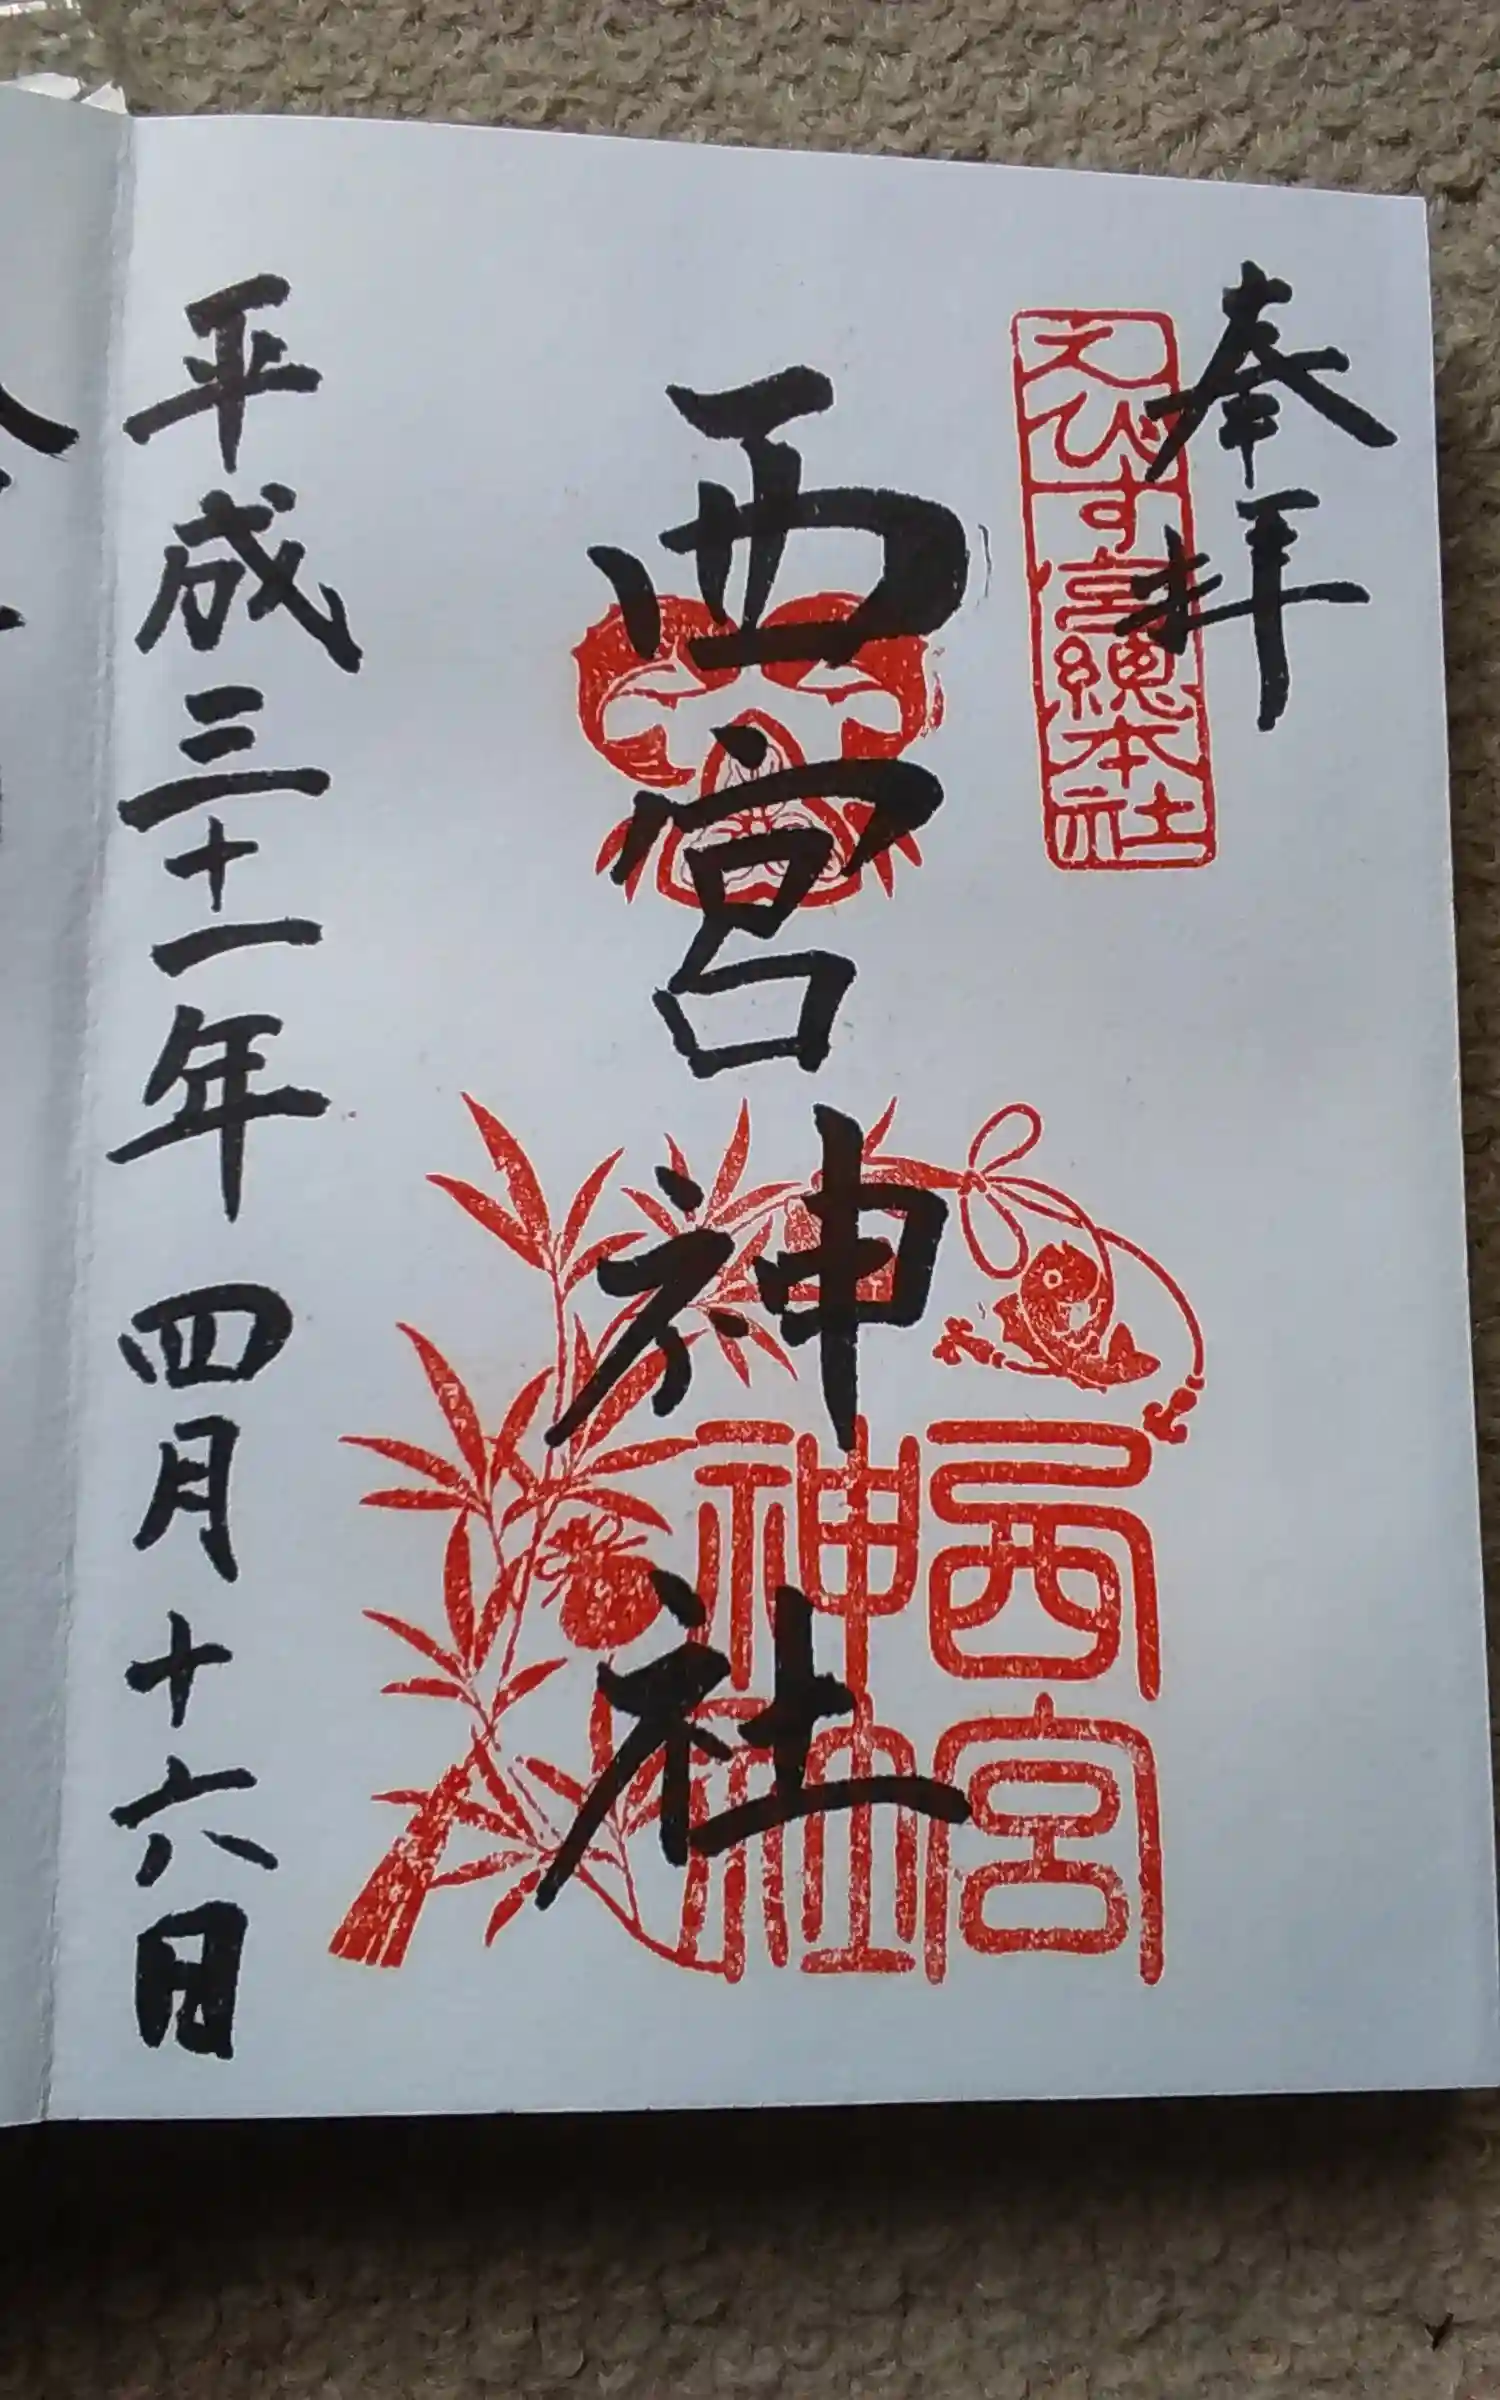 奉拝
えびす宮総本社
西宮神社
西宮
神社
平成三十一年四月十六日